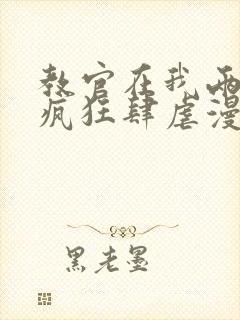 教官在我两
疯狂肆虐漫
黑老墨